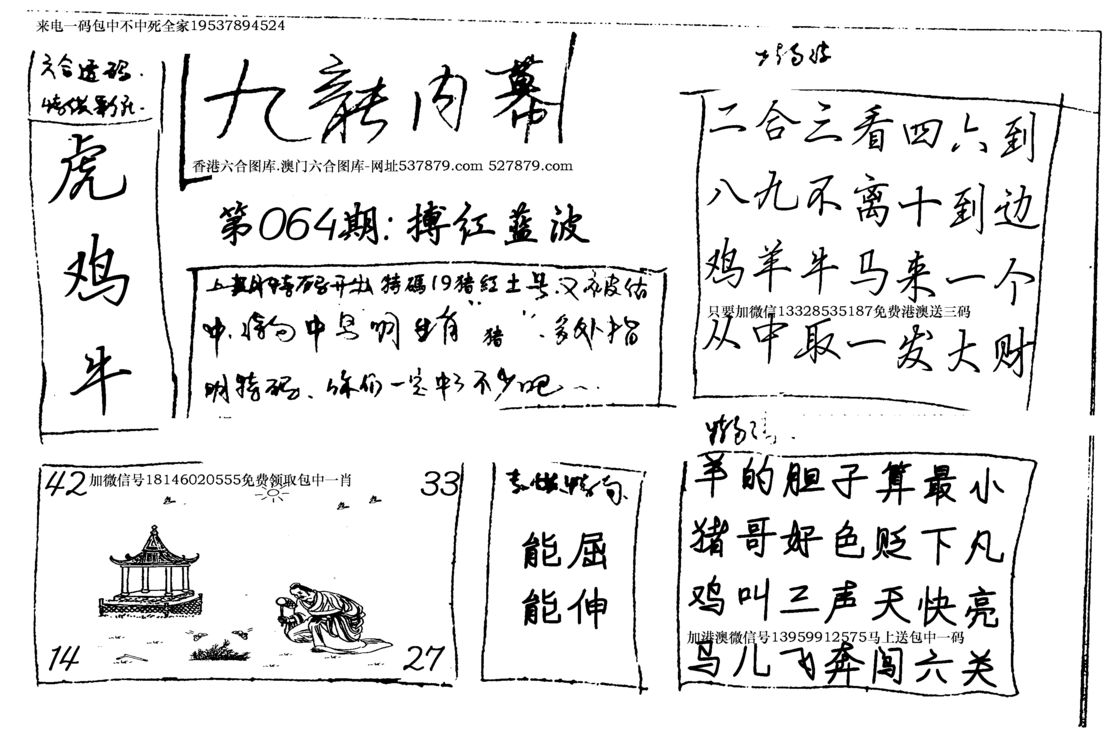 来电一码包中不中死全家19537894524
六合透码.
虎
鸡
牛
九龍内幕
香港六合图库.澳门六合图库-网址537879.com 527879.com
第064期:搏红蓝波
开出特碼19猪红土号
中
猪
多处指
明特码、你们一定中了不少吧
二合三看四六到
八九不离十到边
鸡羊牛马来一个
只要加微信13328535187免费港澳送三码
从中取一发大财
42
加微信号18146020555免费领取包中一肖
33
14
27
能屈
能伸
羊的胆子算最小
猪哥好色贬下凡
鸡叫三声天快亮
加港澳微信号13959912575马上送包中一码
马儿飞奔闯六关